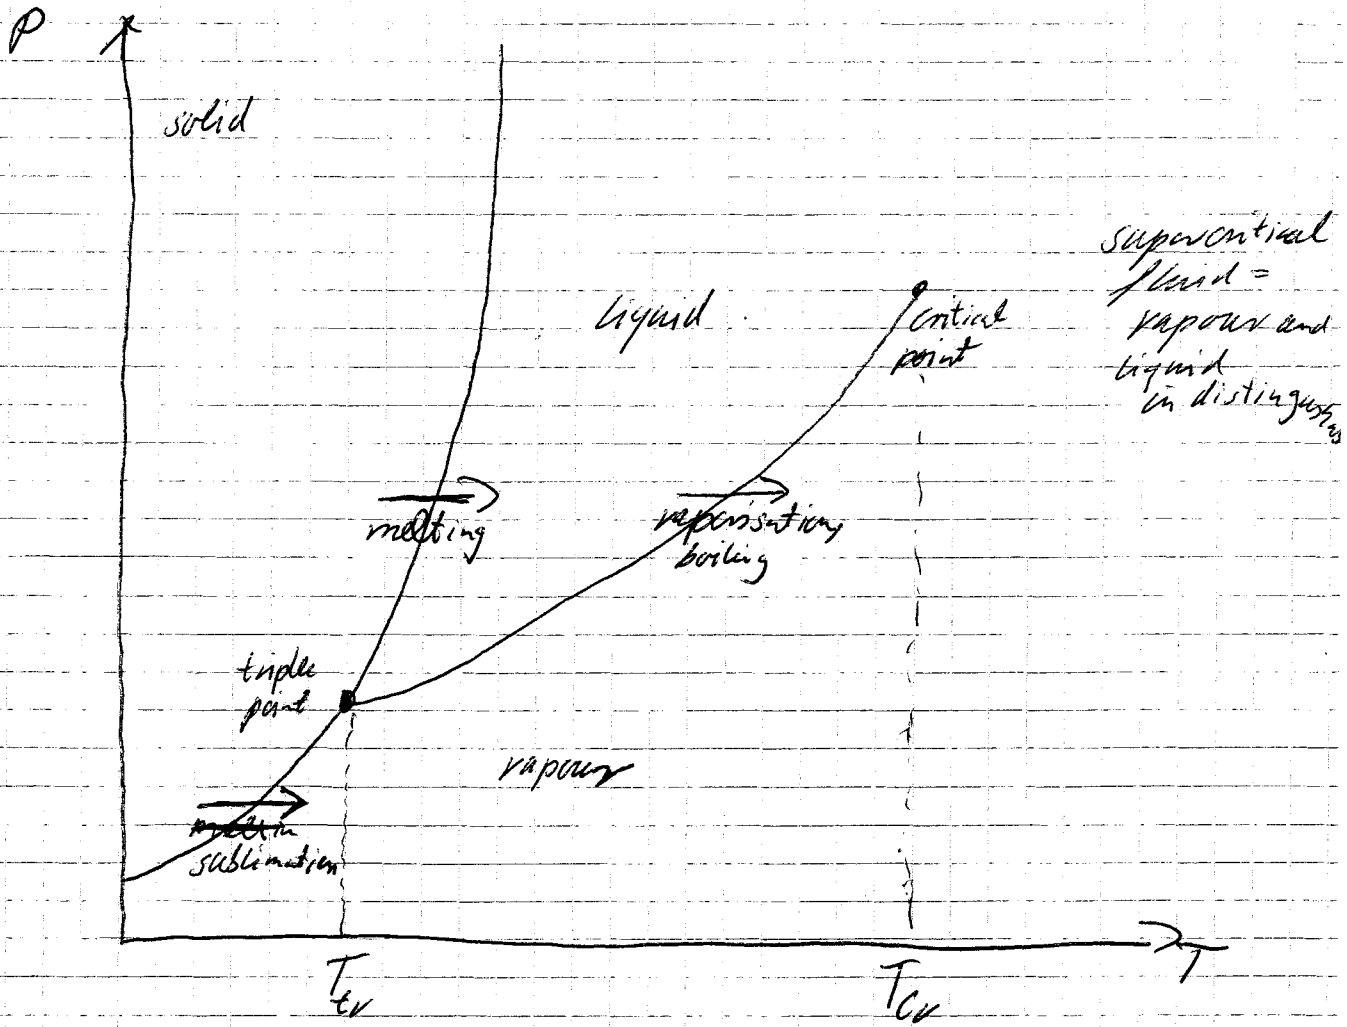 P
solid
supercritical
fluid =
vapour and
liquid
liquid
critical
point
melting
vaporisation,
boiling
triple
point
vapour
sublimation
T
T
tr
T
cr